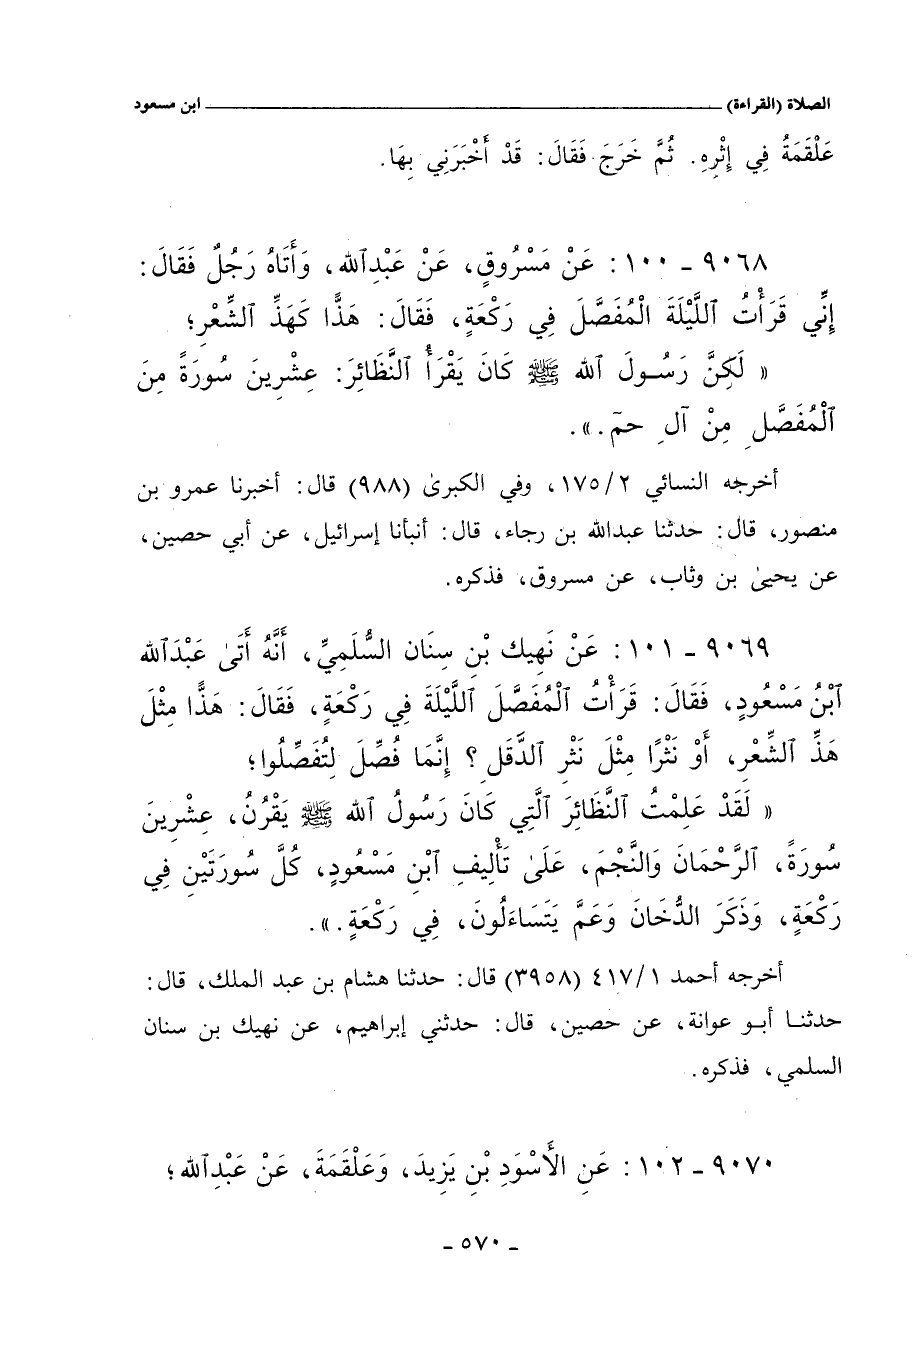 الصلاة (القراءة) ابن مسعود
عَلْقَمَةُ فِي إِثْرِهِ. ثُمَّ خَرَجَ فَقَالَ: قَدْ أَخْبَرَنِي بِهَا.
٩٠٦٨ - ١٠٠: عَنْ مَسْرُوقٍ، عَنْ عَبْدِاللهِ، وَأَتَاهُ رَجُلٌ فَقَالَ:
إِنِّي قَرَأْتُ اللَّيْلَةَ الْمُفَصَّلَ فِي رَكْعَةٍ، فَقَالَ: هَذًّا كَهَذِّ الشِّعْرِ؛
« لَكِنَّ رَسُولَ اللهِ ﷺ كَانَ يَقْرَأُ النَّظَائِرَ: عِشْرِينَ سُورَةً مِنَ
الْمُفَصَّلِ مِنْ آلِ حمۤ.».
أخرجه النسائي ١٧٥/٢، وفي الكبرىٰ (٩٨٨) قال: أخبرنا عمرو بن
منصور، قال: حدثنا عبدالله بن رجاء، قال: أنبأنا إسرائيل، عن أبي حصين،
عن يحيىٰ بن وثاب، عن مسروق، فذكره.
٩٠٦٩ - ١٠١: عَنْ نَهِيكِ بْنِ سِنَان السُّلَمِيِّ، أَنَّهُ أَتَىٰ عَبْدَاللهِ
ابْنُ مَسْعُودٍ، فَقَالَ: قَرَأْتُ الْمُفَصَّلَ اللَّيْلَةَ فِي رَكْعَةٍ، فَقَالَ: هَذًّا مِثْلَ
هَذِّ الشِّعْرِ، أَوْ نَثْرًا مِثْلَ نَثْرِ الدَّقَلِ؟ إِنَّمَا فُصِّلَ لِتُفَصِّلُوا؛
« لَقَدْ عَلِمْتُ النَّظَائِرَ الَّتِي كَانَ رَسُولُ اللهِ ﷺ يَقْرُنُ، عِشْرِينَ
سُورَةً، الرَّحْمَانَ وَالنَّجْمَ، عَلَىٰ تَأْلِيفِ ابْنِ مَسْعُودٍ، كُلَّ سُورَتَيْنِ فِي
رَكْعَةٍ، وَذَكَرَ الدُّخَانَ وَعَمَّ يَتَسَاءَلُونَ، فِي رَكْعَةٍ.».
أخرجه أحمد ٤١٧/١ (٣٩٥٨) قال: حدثنا هشام بن عبد الملك، قال:
حدثنا أبو عوانة، عن حصين، قال: حدثني إبراهيم، عن نهيك بن سنان
السلمي، فذكره.
٩٠٧٠ - ١٠٢: عَنِ الأَسْوَدِ بْنِ يَزِيدَ، وَعَلْقَمَةَ، عَنْ عَبْدِاللهِ؛
- ٥٧٠ -